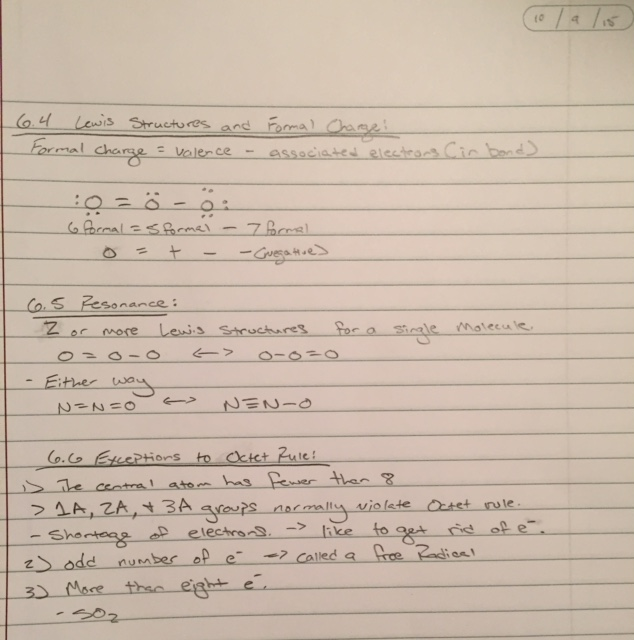 10/9/15
6.4 Lewis Structures and Formal Charge:
Formal charge = valence - associated electrons (in bond)
:Ö = Ö - Ö:
6 formal = 5 formal - 7 formal
0 = + - -(negative)
6.5 Resonance:
2 or more Lewis Structures for a single molecule.
O = O - O <-> O-O=O
- Either way
N=N=O <-> N≡N-O
6.6 Exceptions to Octet Rule:
1) The central atom has fewer then 8
> 1A, 2A, + 3A groups normally violate Octet rule.
- Shortage of electrons. -> like to get rid of e⁻.
2) odd number of e⁻ => called a free Radical
3) More than eight e⁻.
- SO₂